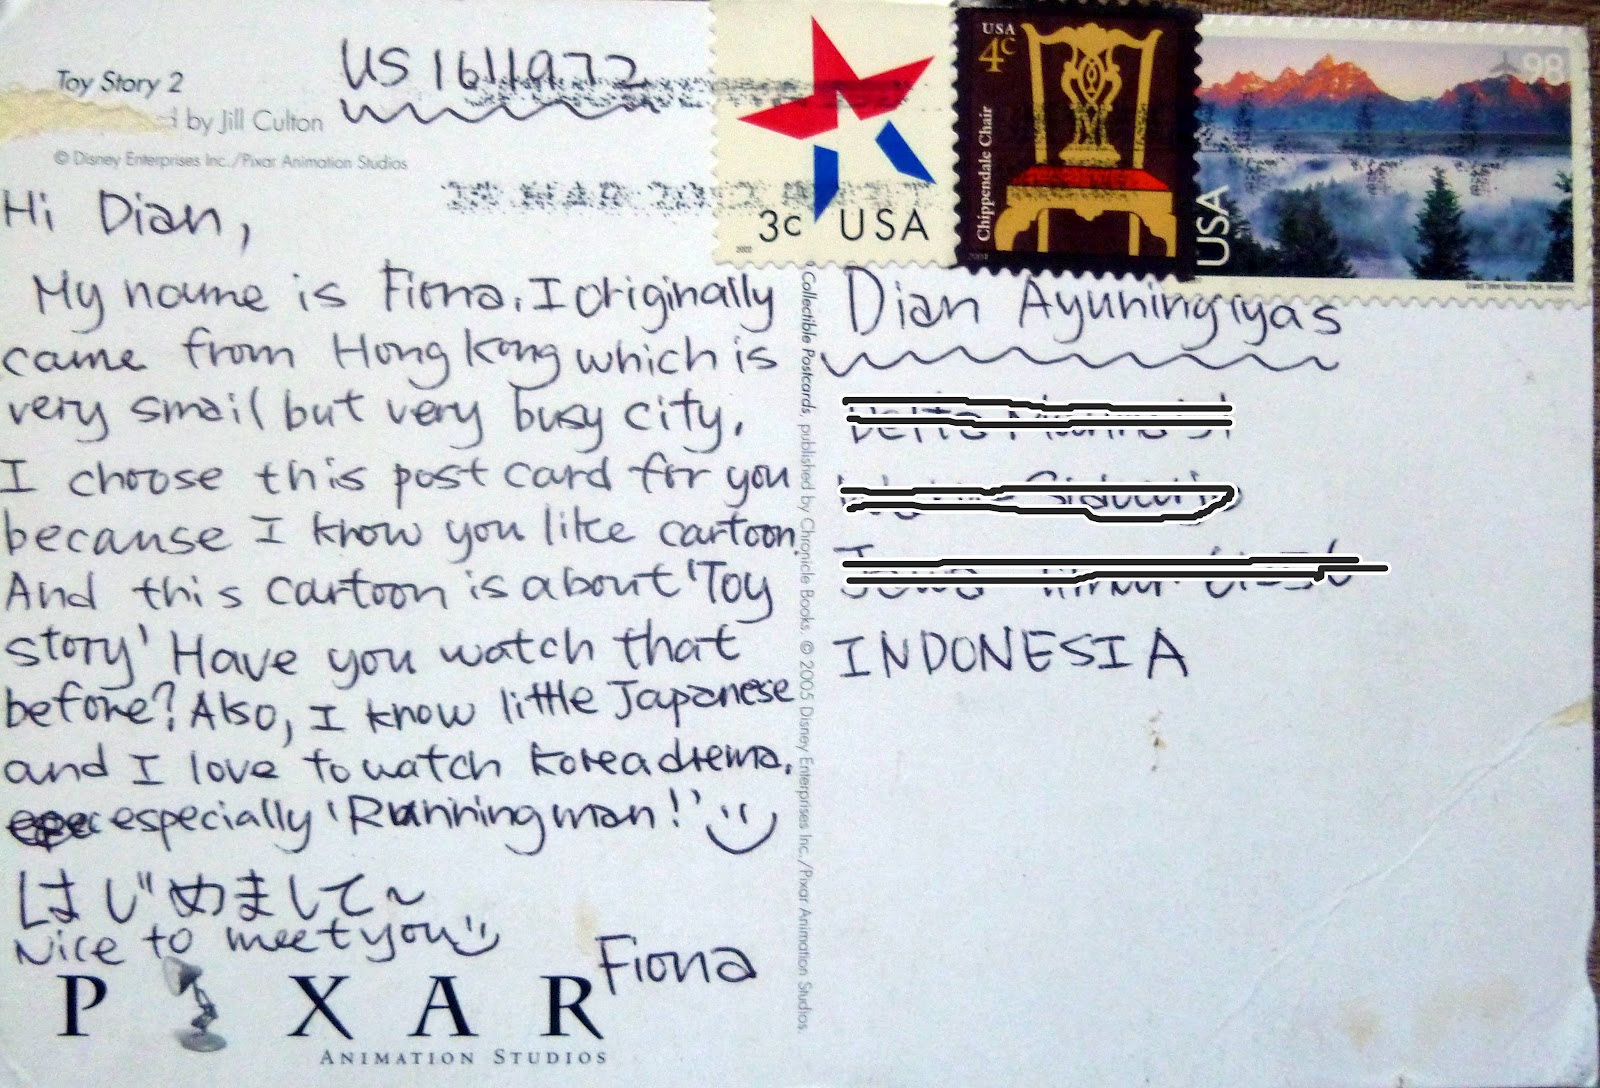 Toy Story 2
by Jill Culton
© Disney Enterprises Inc./Pixar Animation Studios
US 1611972
Hi Dian,
My name is Fiona. I originally
came from Hong Kong which is
very small but very busy city.
I choose this post card for you
because I know you like cartoon.
And this cartoon is about 'Toy
story' Have you watch that
before? Also, I know little Japanese
and I love to watch Korea drema.
especially 'Running man!'
はじめまして~
Nice to meet you
Fiona
PIXAR
ANIMATION STUDIOS
Collectible Postcards, published by Chronicle Books. © 2005 Disney Enterprises Inc./Pixar Animation Studios.
3c USA
2002
USA
4c
Chippendale Chair
2004
98
USA
Grand Teton National Park, Wyoming
Dian Ayuningtyas
INDONESIA